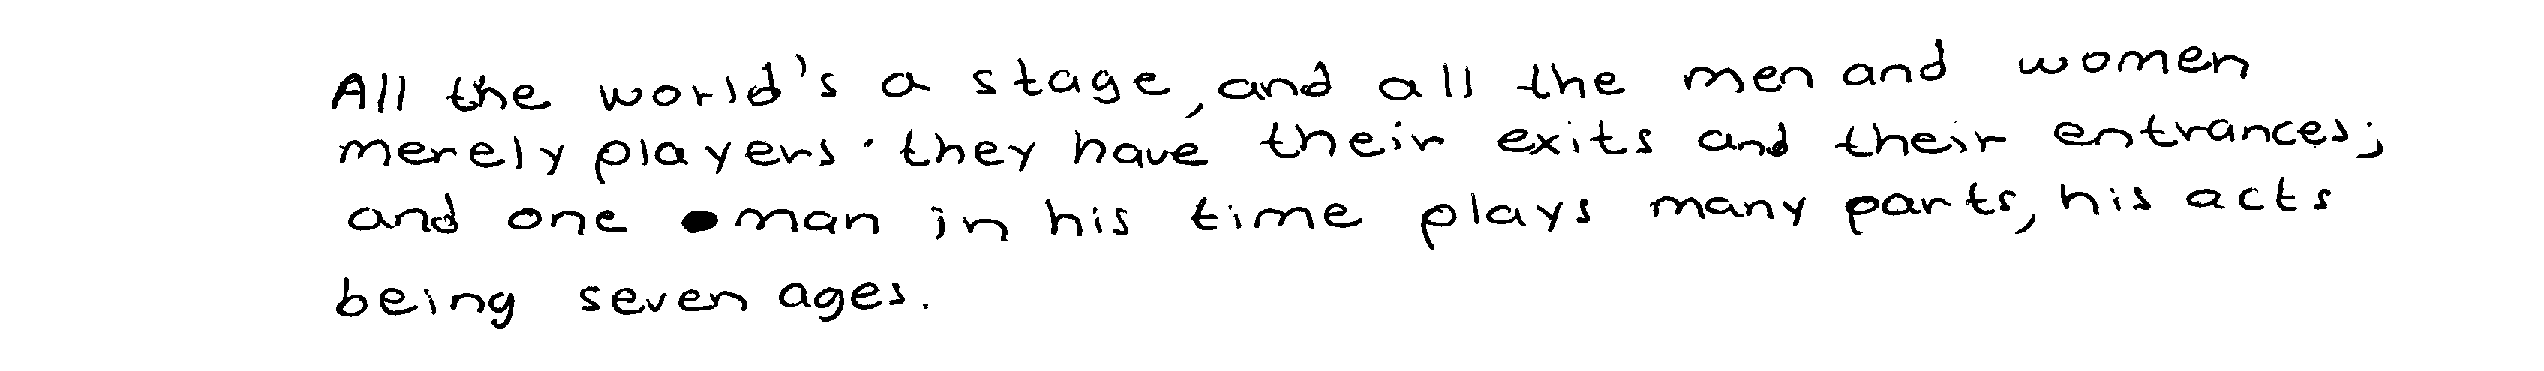 All the world's a stage, and all the men and women
merely players. they have their exits and their entrances;
and one man in his time plays many parts, his acts
being seven ages.